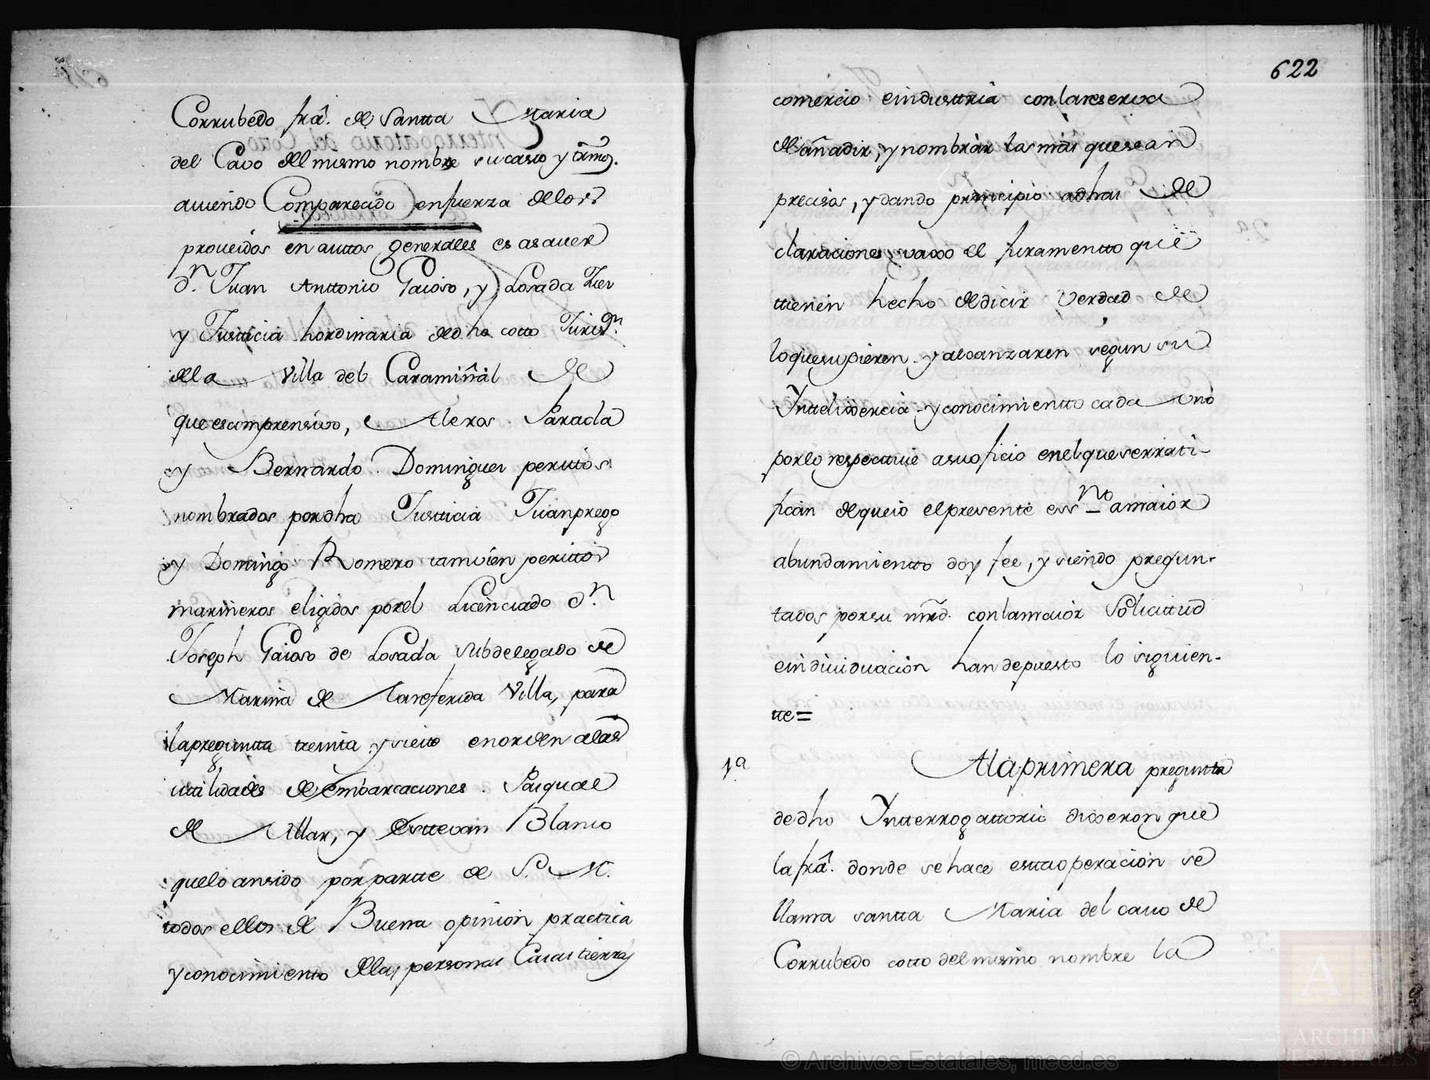 Corrubedo frâ. de Santta Maria
del Cavo del mismo nombre su casco y termo.
aviendo Comparecido enfuerza delos
proveidos en auttos generales es asaver
d.n Juan Anttonio Gaioso, y Losada Juez
y Justicia hordinaria de dho cotto Jurisd.n
de la Villa del Caramiñal de
que es comprensivo, Alexos Parada
y Bernardo Dominguez perittos
nombrados por dha Justicia Juan prego
y Domingo Romero tamvien perittos
marineros eligidos por el Licenciado d.n
Joseph Gaioso de Losada subdelegado de
Marina de la referida Villa, para
la pregunta treinta y siete en orden alas
utilidades de embarcaciones. Pasqual
de Villar, y Esttevan Blanco
que lo an sido por partte de S. M.
todos ellos de Buena opinion practica
y conocimiento delas personas Casas tierras
622
comercio e industtria con la reserva
de añadir, y nombrar las mas que sean
precisas, y dando principio a dhas de
claraciones, vaxo el juramentto que
ttienen hecho de dicir verdad de
lo que supieren y alcanzaren segun su
Yntelixencia y conocimientto cada uno
por lo respecttive a su oficio en el que se rrati-
fican de que io el presente ess.no a maior
abundamientto doy fee, y siendo pregun-
tados por su mrd. con la maior Solicittud
e individuacion han depuesto lo siguien-
tte=
1.a
A la primera pregunta
de dho Ynterrogattorio dixeron que
la frâ. donde se hace estta operacion se
llama santta Maria del cavo de
Corrubedo cotto del mismo nombre la
© Archivos Estatales, mecd.es
ARCHIVOS
ESTATALES